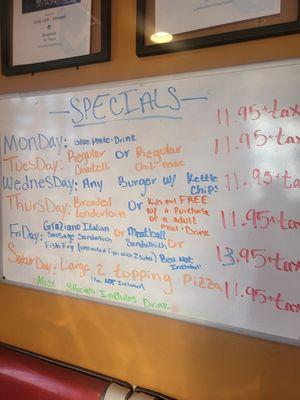 Breakfast
SPECIALS
11.95+tax
MonDay: Blue Plate·Drink
11.95+tax
TuesDay: Regular Cavatelli or Regular Chili·mac
11.95+tax
WednesDay: Any Burger w/ Kettle Chips
11.95+tax
ThursDay: Breaded Tenderloin Or Kids eat FREE w/ a Purchase of a adult meal+Drink
11.95+tax
FriDay: Graziano Italian Sausage Sandwich or Meatball Sandwich Or
Fish Fry (unlimited Fish with 2 sides) Bev Not Included
13.95+tax
SaturDay: Large 2 topping Pizza
(Bev NOT Included)
11.95+tax
Most Specials Includes Drink